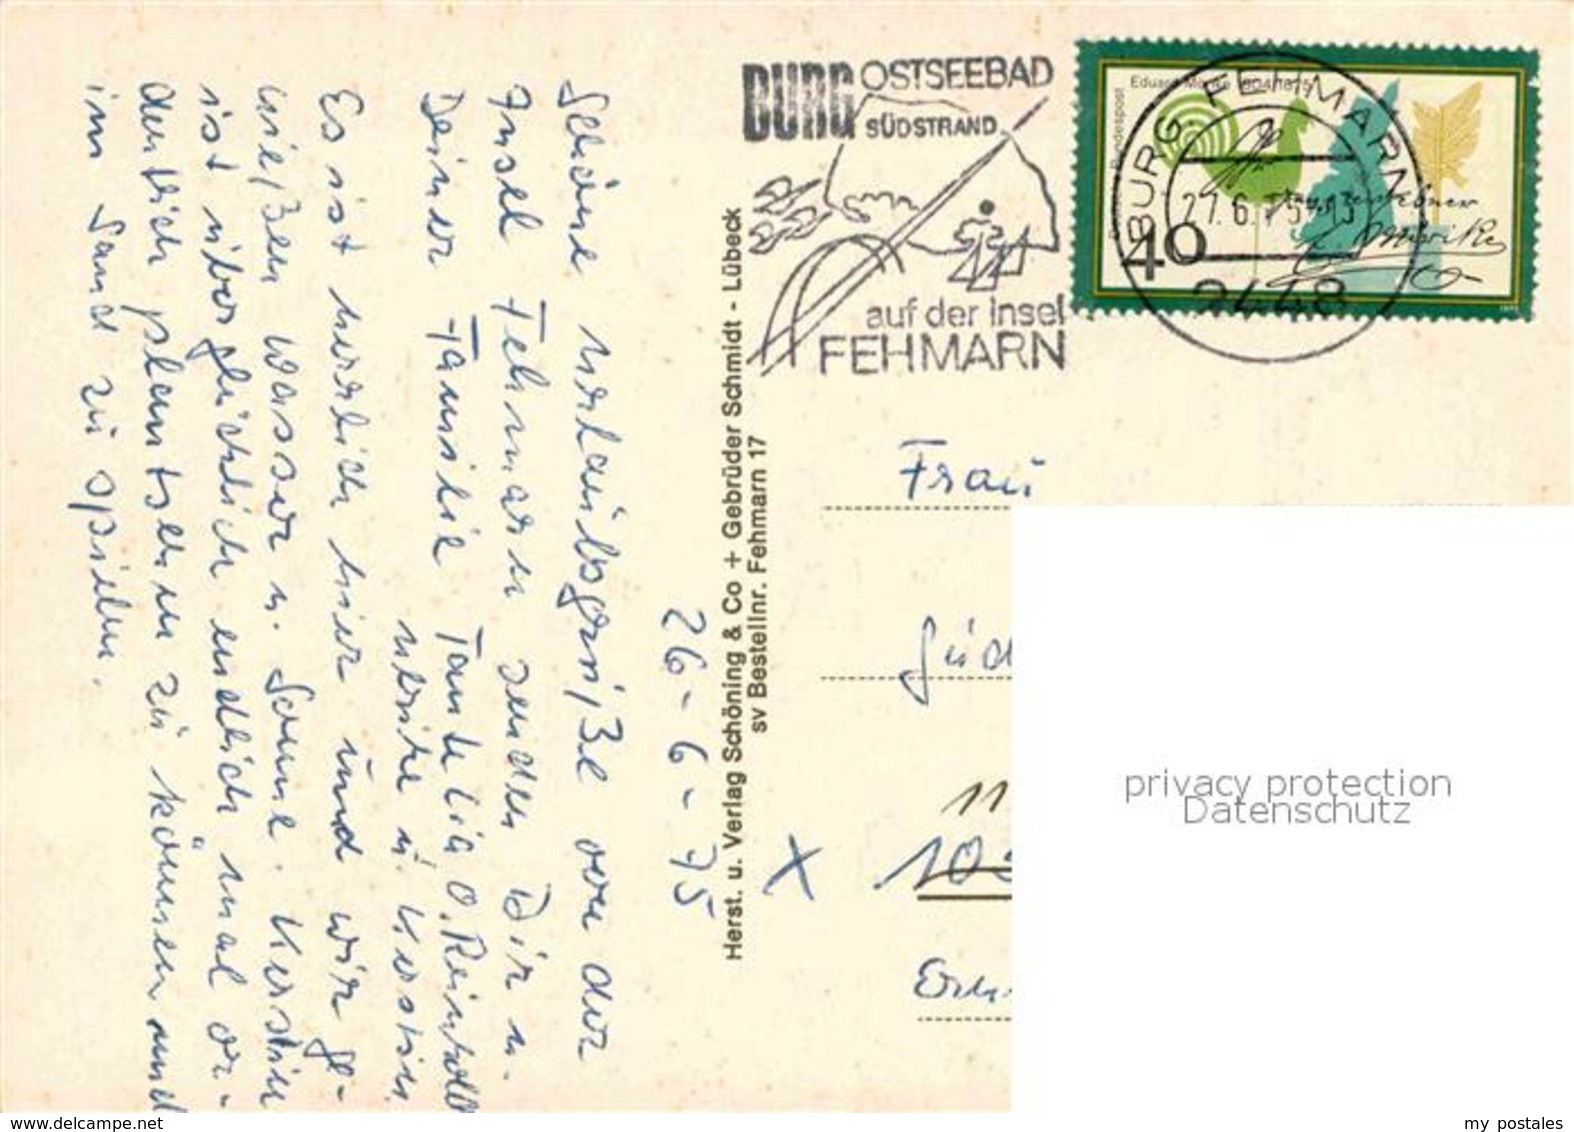 BURG OSTSEEBAD
SÜDSTRAND
auf der Insel
FEHMARN
Eduard Mörike 1804-1875
Bundespost
40
BURG FEHMARN
27.6.75-13
2448
Schöne Urlaubsgrüße von der
Insel Fehmarn senden Dir u.
Deiner Familie Tante Lia O. Reinhold
u. Kerstin
Es ist herrlich hier und wir ge-
nießen Wasser u. Sonne. Kerstin
ist überglücklich endlich mal or-
dentlich plantschen zu können und
im Sand zu spielen.
26-6-75
Herst. u. Verlag Schöning & Co + Gebrüder Schmidt - Lübeck
sv Bestellnr. Fehmarn 17
Frau
11
X 10
privacy protection
Datenschutz
www.delcampe.net
my postales